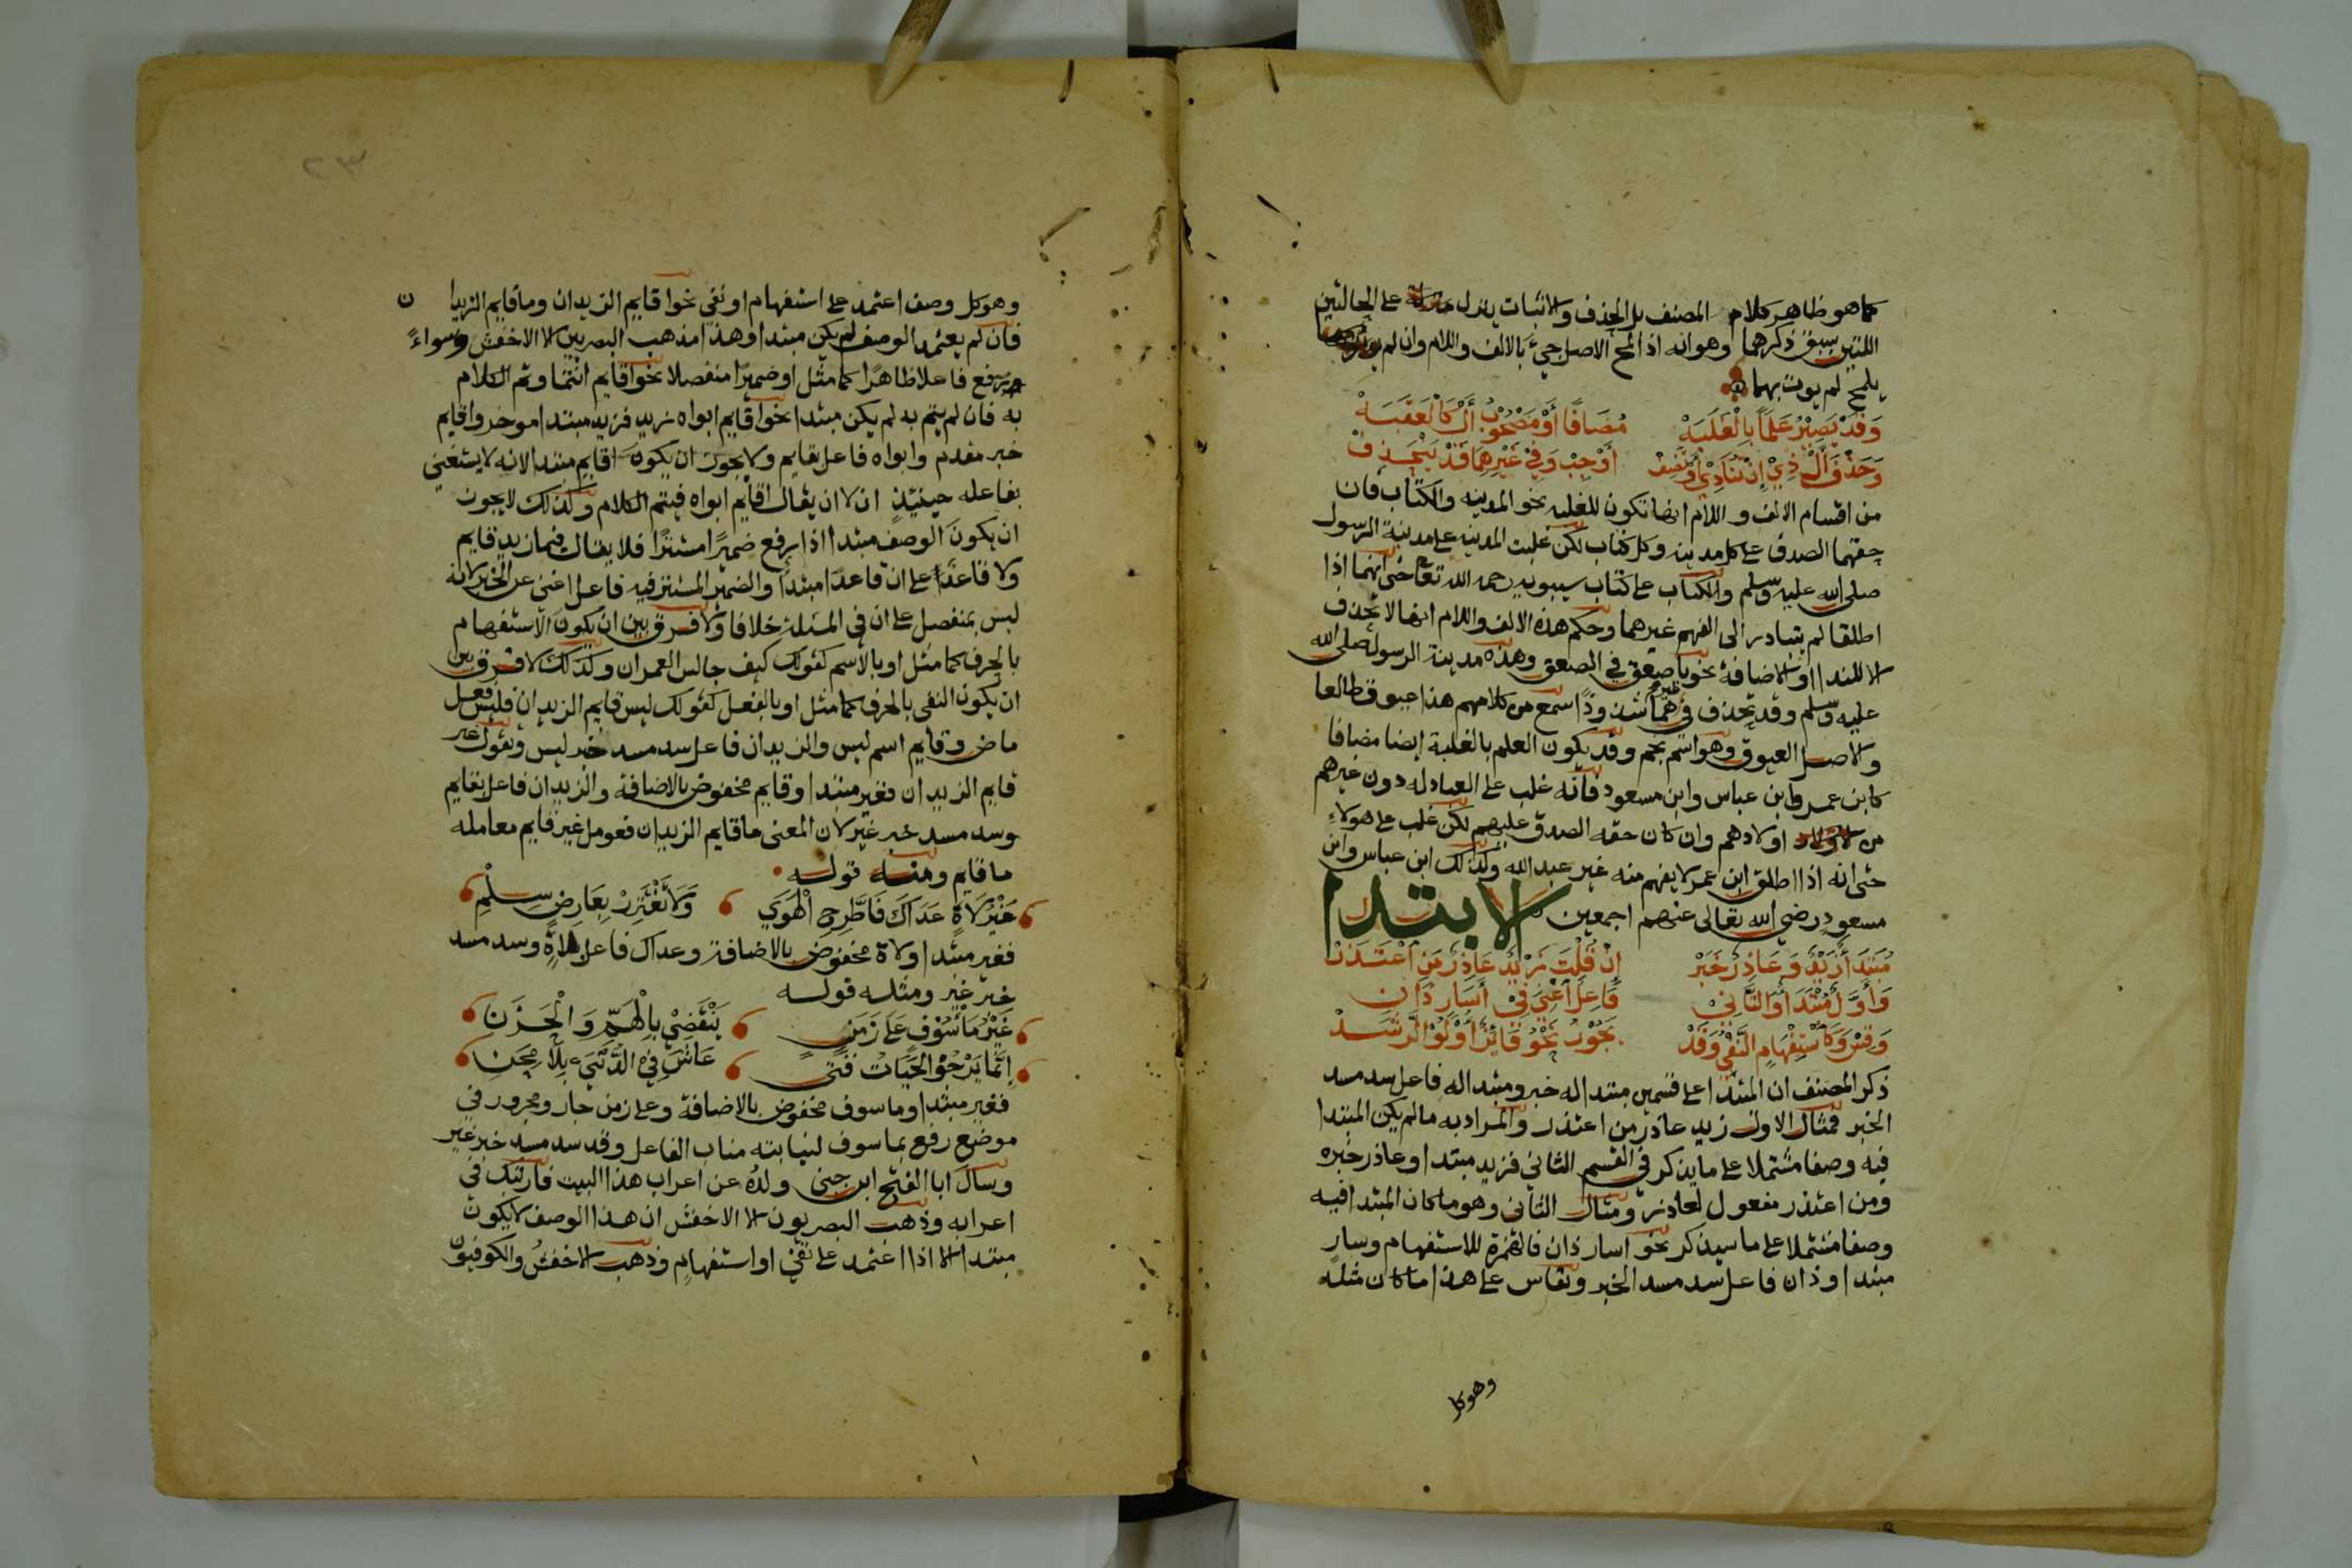 كما هو ظاهر كلام المصنف بل الحذف والاثبات ينزل على الحالتين
اللتين سبق ذكرهما وهو انه اذا لمح الاصل جيء بالالف واللام وان لم
يلمح لم يوت بهما
وَقَدْ يَصِيْرُ عَلَماً بِالْغَلَبَهْ مُضَافًا أَوْ مَصْحُوْبُ أَلْ كَالْعَقَبَهْ
وَحَذْفَ أَلْ ذِيْ إِنْ تُنَادِيْ أَوْ تُضِفْ أَوْجِبْ وَفِي غَيْرِهِمَا قَدْ تَنْحَذِفْ
من اقسام الالف واللام انها تكون للغلبه نحو المدينه والكتاب فان
حقهما الصدق على كل مدينه وكل كتاب لكن غلبت المدينه على مدينة الرسول
صلى الله عليه وسلم والكتاب على كتاب سيبويه رحمه الله تعالى حتى انهما اذا
اطلقا لم يتبادر الى الفهم غيرهما وحكم هذه الالف واللام انها لا تحذف
الا للندا او الاضافة نحو يا صعق في الصعق وهذه مدينة الرسول صلى الله
عليه وسلم وقد تحذف في غيرهما شذوذا سمع من كلامهم هذا عيوق طالعا
والاصل العيوق وهو اسم نجم وقد يكون العلم بالغلبة ايضا مضافا
كابن عمر وابن عباس وابن مسعود فانه غلب على العبادله دون غيرهم
من اولادهم وان كان حقه الصدق عليهم لكن غلب على هولاء
حتى انه اذا اطلق ابن عمر لا يفهم منه غير عبد الله وكذلك ابن عباس وابن
مسعود رضي الله تعالى عنهم اجمعين الابتدا
مُبْتَدَأٌ زَيْدٌ وَعَاذِرٌ خَبَرْ إِنْ قُلْتَ زَيْدٌ عَاذِرٌ مَنِ اعْتَذَرْ
وَأَوَّلٌ مُبْتَدَأٌ وَالثَّانِيْ فَاعِلٌ اغْنَى فِيْ أَسَارٍ ذَانِ
وَقِسْ وَكَاسْتِفْهَامٍ النَّفْيُ وَقَدْ يَجُوْزُ نَحْوُ فَائِزٌ أُوْلُوْ الرَّشَدْ
ذكر المصنف ان المبتدا على قسمين مبتدا له خبر ومبتدا له فاعل سد مسد
الخبر فمثال الاول زيد عاذر من اعتذر والمراد به ما لم يكن المبتدا
فيه وصفا مشتملا على ما يذكر في القسم الثاني فزيد مبتدا وعاذر خبره
ومن اعتذر مفعول لعاذر ومثال الثاني وهو ما كان المبتدا فيه
وصفا مشتملا على ما سيذكر نحو اسار ذان فالهمزة للاستفهام وسار
مبتدا وذان فاعل سد مسد الخبر وتقاس على هذا ما كان مثله
وهو كل
٢٣
وهو كل وصف اعتمد على استفهام او نفي نحو اقايم الزيدان وما قايم الزيدا ن
فان لم يعتمد الوصف لم يكن مبتدا وهذا مذهب البصريين الا الاخفش وسواءً
رفع فاعلا ظاهرًا كما مثل او ضميرًا منفصلا نحو اقايم انتما وتم الكلام
به فان لم يتم به لم يكن مبتدا نحو اقايم ابواه زيد فزيد مبتدا موخر واقايم
خبر مقدم وابواه فاعل بقايم ولا يجوز ان يكون اقايم مبتدا لانه لا يستغنى
بفاعله حينيذ اذ لا يقال اقايم ابواه فيتم الكلام وكذلك لا يجوز
ان يكون الوصف مبتدا اذا رفع ضميرًا مستترًا فلا يقال فيما زيد قايم
ولا قاعد على ان قاعدا مبتدأ والضمير المستتر فيه فاعل اغنى عن الخبر لانه
ليس بمنفصل على ان في المسئلة خلافا ولا فرق بين ان يكون الاستفهام
بالحرف كما مثل او بالاسم كقولك كيف جالس العمران وكذلك لا فرق بين
ان يكون النفي بالحرف كما مثل او بالفعل كقولك ليس قايم الزيدان فليس فعل
ماض وقايم اسم ليس والزيدان فاعل سد مسد خبر ليس وتقول غير
قايم الزيدان فغير مبتدا وقايم مخفوض بالاضافة والزيدان فاعل بقايم
وسد مسد خبر غير لان المعنى ما قايم الزيدان فعومل غير قايم معامله
ما قايم ومنه قوله
غَيْرُ لَاهٍ عَدَاكَ فَاطَّرِحِ الْهَوَي وَلَا تَغْتَرِرْ بِعَارِضِ سِلْمِ
فغير مبتدا ولاه مخفوض بالاضافة وعداك فاعل بلاهٍ وسد مسد
خبر غير ومثله قوله
غَيْرُ مَأْسُوْفٍ عَلَى زَمَنٍ يَنْقَضِيْ بِالْهَمِّ وَالْحَزَنِ
إِنَّمَا يَرْجُوْ الْحَيَاتَ فَتًى عَاشَ فِيْ الدُّنْيَ بِلَا مِحَنِ
فغير مبتدا وماسوف مخفوض بالاضافة وعلى زمن جار ومجرور في
موضع رفع بماسوف لنيابته مناب الفاعل وقد سد مسد خبر غير
وسال ابا الفتح ابن جني ولدُه عن اعراب هذا البيت فارتبك في
اعرابه وذهب البصريون الا الاخفش ان هذا الوصف لا يكون
مبتدا الا اذا اعتمد على نفي او استفهام وذهب الاخفش والكوفيون